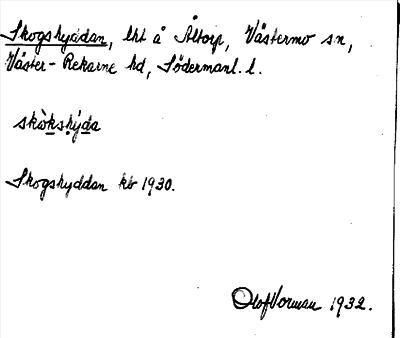 Skogshyddan, lht å Åltorp, Västermo sn,
Väster-Rekarne hd, Södermanl. l.
skòkshýda
Skogshyddan kb 1930.
Olof Vorman 1932.